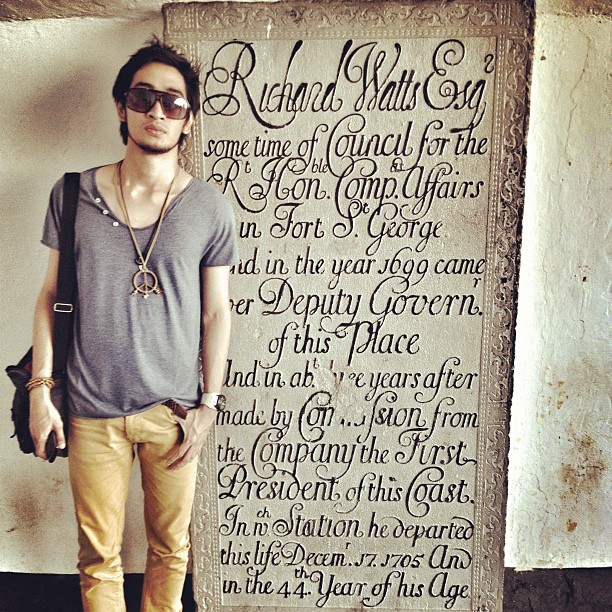 Richard Watts Esqʳ
some time of Council for the
Rᵗ Honᵇˡᵉ Comp. Affairs
in Fort Sᵗ George
nd in the year 1699 came
ver Deputy Governʳ.
of this Place
And in years after
made by from
the Company the First
President of this Coast.
In wᶜʰ Station he departed
this life Decemʳ 17. 1705 And
in the 44ᵗʰ Year of his Age